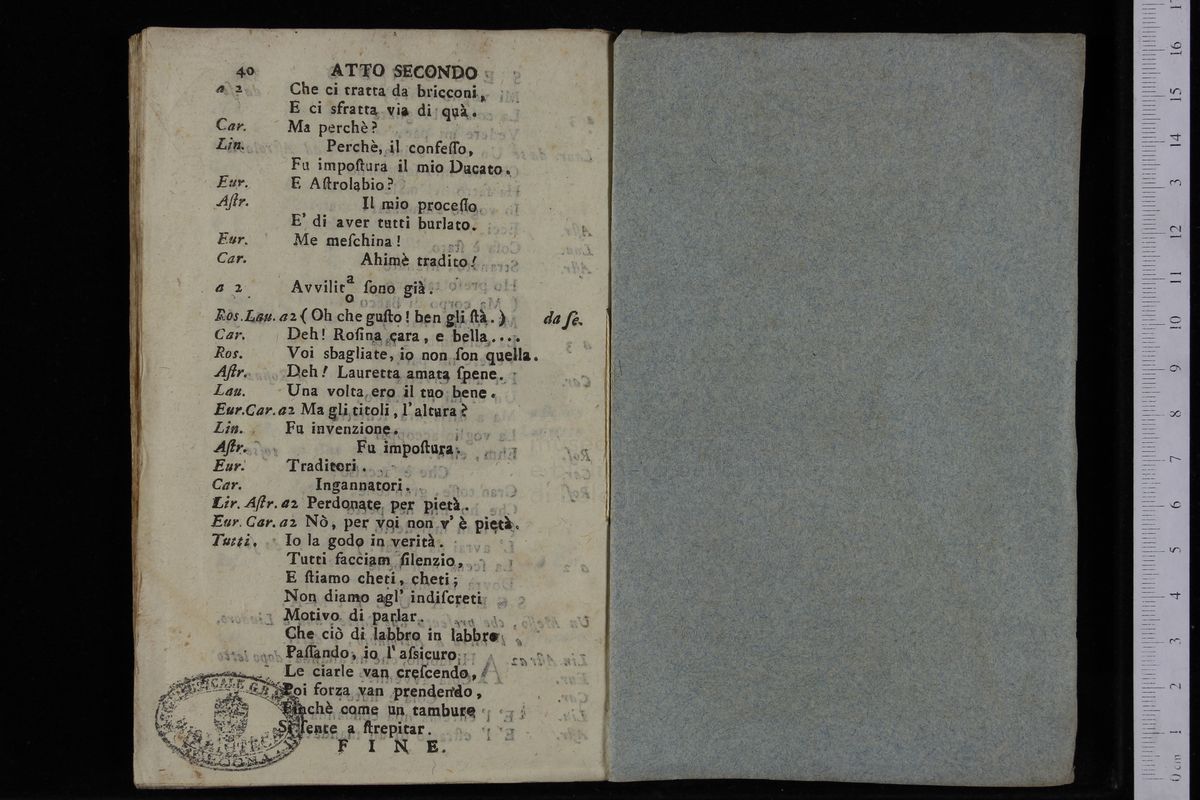 40 ATTO SECONDO
a 2 Che ci tratta da bricconi,
E ci sfratta via di quà.
Car. Ma perchè?
Lin. Perchè, il confeſſo,
Fu impoſtura il mio Ducato.
Eur. E Aſtrolabio?
Aſtr. Il mio proceſſo
E' di aver tutti burlato.
Eur. Me meſchina!
Car. Ahimè tradito!
a 2 Avvilit a/o ſono già.
Ros. Lau. a2 ( Oh che guſto! ben gli ſtà. ) da ſe.
Car. Deh! Roſina cara, e bella....
Ros. Voi sbagliate, io non ſon quella.
Aſtr. Deh! Lauretta amata ſpene.
Lau. Una volta ero il tuo bene.
Eur. Car. a2 Ma gli titoli, l'altura?
Lin. Fu invenzione.
Aſtr. Fu impoſtura.
Eur. Traditori.
Car. Ingannatori.
Lir. Aſtr. a2 Perdonate per pietà.
Eur. Car. a2 Nò, per voi non v' è pietà.
Tutti. Io la godo in verità.
Tutti facciam ſilenzio,
E ſtiamo cheti, cheti;
Non diamo agl' indiſcreti
Motivo di parlar.
Che ciò di labbro in labbro
Paſſando, io l' aſsicuro
Le ciarle van creſcendo,
Poi forza van prendendo,
Finchè come un tamburo
Si ſente a ſtrepitar.
FINE.
BIBLIOTECA
0 cm 1 2 3 4 5 6 7 8 9 10 11 12 13 14 15 16 17